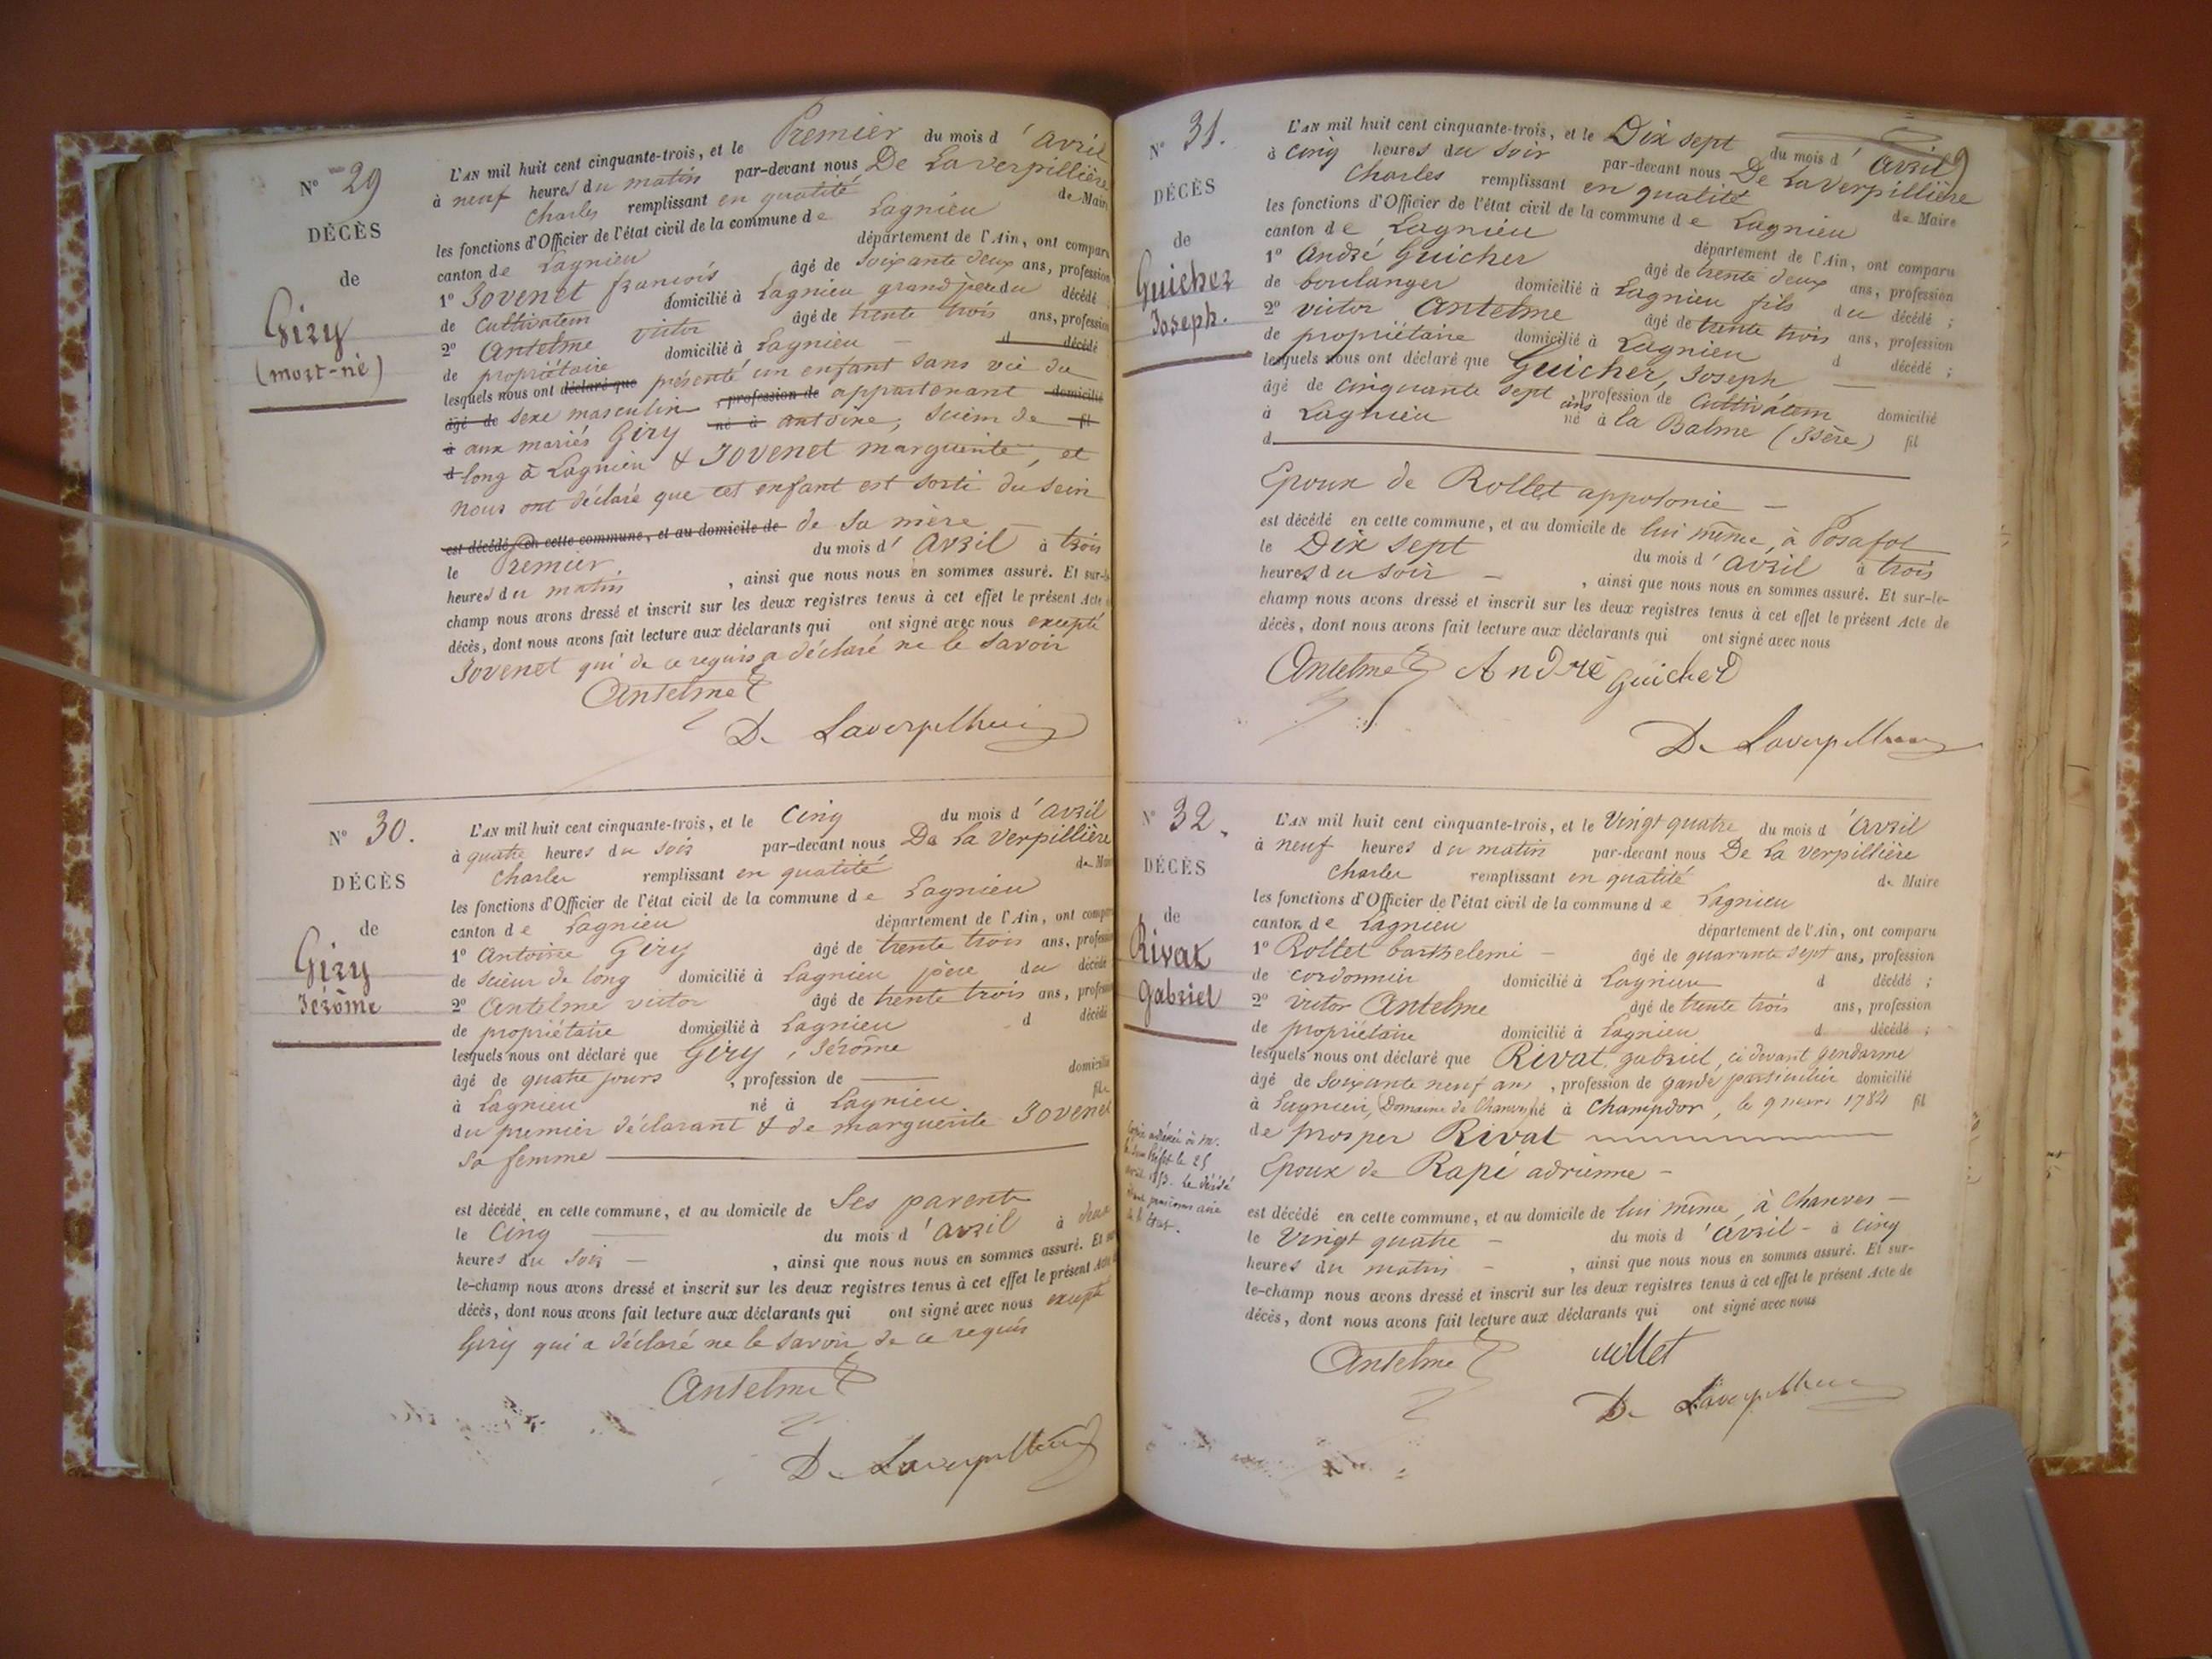 N° 29
DÉCÈS
de
Giry
(mort-né)
L'AN mil huit cent cinquante-trois, et le Premier du mois d'avril
à neuf heures du matin par-devant nous De Laverpillière
Charles remplissant en qualité de Maire
les fonctions d'Officier de l'état civil de la commune de Lagnieu
canton de Lagnieu département de l'Ain, ont comparu
1° Jovenet francois âgé de soixante deux ans, profession
de cultivateur domicilié à Lagnieu grand père du décédé ;
2° Antelme victor âgé de trente trois ans, profession
de propriétaire domicilié à Lagnieu – d décédé
lesquels nous ont déclaré que présenté un enfant sans vie du
âgé de sexe masculin , profession de appartenant domicilié
à aux mariés Giry né à antoine, scieur de fil
d long à Lagnieu & Jovenet marguerite, et
nous ont déclaré que cet enfant est sorti du sein
est décédé en cette commune, et au domicile de de sa mère –
le Premier. du mois d'avril à trois
heures du matin , ainsi que nous nous en sommes assuré. Et sur-le-
champ nous avons dressé et inscrit sur les deux registres tenus à cet effet le présent Acte
décès, dont nous avons fait lecture aux déclarants qui ont signé avec nous excepté
Jovenet qui de ce requis a déclaré ne le savoir
Antelme
De Laverpillière
N° 30.
DÉCÈS
de
Giry
Jérôme
L'AN mil huit cent cinquante-trois, et le Cinq du mois d'avril
à quatre heures du soir par-devant nous De La verpillière
Charles remplissant en qualité de Maire
les fonctions d'Officier de l'état civil de la commune de Lagnieu
canton de Lagnieu département de l'Ain, ont comparu
1° Antoine Giry âgé de trente trois ans, profession
de scieur de long domicilié à Lagnieu père du décédé
2° Antelme victor âgé de trente trois ans, profession
de propriétaire domicilié à Lagnieu d décédé
lesquels nous ont déclaré que Giry, Jérôme
âgé de quatre jours , profession de — domicilié
à Lagnieu né à Lagnieu fils
du premier déclarant & de marguerite Jovenet
sa femme —
est décédé en cette commune, et au domicile de ses parents
le Cinq — du mois d'avril à deux
heures du soir – , ainsi que nous nous en sommes assuré. Et sur
le-champ nous avons dressé et inscrit sur les deux registres tenus à cet effet le présent Acte
décès, dont nous avons fait lecture aux déclarants qui ont signé avec nous excepté
Giry qui a déclaré ne le savoir de ce requis
Antelme
De Laverpillière
N° 31.
DÉCÈS
de
Guicher
Joseph.
L'AN mil huit cent cinquante-trois, et le Dix sept du mois d'avril
à cinq heures du soir par-devant nous De Laverpillière
Charles remplissant en qualité de Maire
les fonctions d'Officier de l'état civil de la commune de Lagnieu
canton de Lagnieu département de l'Ain, ont comparu
1° André Guicher âgé de trente deux ans, profession
de boulanger domicilié à Lagnieu fils du décédé ;
2° victor Antelme âgé de trente trois ans, profession
de propriétaire domicilié à Lagnieu d décédé ;
lesquels nous ont déclaré que Guicher, Joseph —
âgé de cinquante sept ans, profession de Cultivateur domicilié
à Lagnieu né à la Balme (Isère) fil
d
Epoux de Rollet appolonie –
est décédé en cette commune, et au domicile de lui même, à Posafol
le Dix sept du mois d'avril à trois
heures du soir – , ainsi que nous nous en sommes assuré. Et sur-le-
champ nous avons dressé et inscrit sur les deux registres tenus à cet effet le présent Acte de
décès, dont nous avons fait lecture aux déclarants qui ont signé avec nous
Antelme André Guicher
De Laverpillière
N° 32.
DÉCÈS
de
Rivat
Gabriel
L'AN mil huit cent cinquante-trois, et le Vingt quatre du mois d'avril
à neuf heures du matin par-devant nous De La verpillière
Charles remplissant en qualité de Maire
les fonctions d'Officier de l'état civil de la commune de Lagnieu
canton de Lagnieu département de l'Ain, ont comparu
1° Rollet barthelemi – âgé de quarante sept ans, profession
de cordonnier domicilié à Lagnieu d décédé ;
2° victor Antelme âgé de trente trois ans, profession
de propriétaire domicilié à Lagnieu d décédé ;
lesquels nous ont déclaré que Rivat, gabriel, ci devant gendarme
âgé de soixante neuf ans , profession de garde particulier domicilié
à Lagnieu, Domaine de né à Champdor, le 9 mars 1784 fil
de prosper Rivat
Epoux de Rapi adrienne –
est décédé en cette commune, et au domicile de lui même, à Chanves –
le Vingt quatre – du mois d'avril – à cinq
heures du matin – , ainsi que nous nous en sommes assuré. Et sur-
le-champ nous avons dressé et inscrit sur les deux registres tenus à cet effet le présent Acte de
décès, dont nous avons fait lecture aux déclarants qui ont signé avec nous
Copie adressée à Mr.
le Préfet le 25
avril 1853. Le décédé
étant pensionnaire
de l'Etat.
Antelme Rollet
De Laverpillière